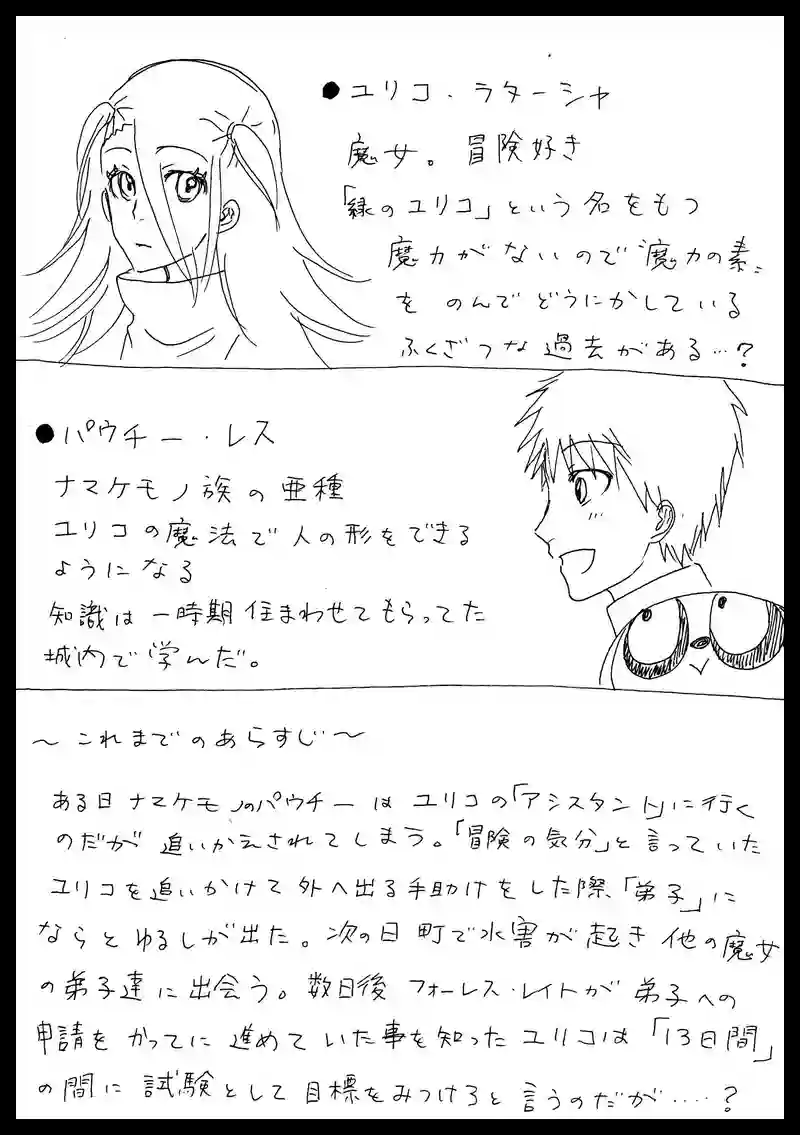 ●ユリコ・ラターシャ
魔女。冒険好き
「緑のユリコ」という名をもつ
魔力がないので"魔力の素"
をのんでどうにかしている
ふくざつな過去がある…?
●パウチー・レス
ナマケモノ族の亜種
ユリコの魔法で人の形をできる
ようになる
知識は一時期住まわせてもらってた
城内で学んだ。
～これまでのあらすじ～
ある日ナマケモノのパウチーはユリコの「アシスタント」に行く
のだが追いかえされてしまう。「冒険の気分」と言っていた
ユリコを追いかけて外へ出る手助けをした際、「弟子」に
ならとゆるしが出た。次の日町で水害が起き他の魔女
の弟子達に出会う。数日後フォーレス・レイトが弟子への
申請をかってに進めていた事を知ったユリコは「13日間」
の間に試験として目標をみつけろと言うのだが……?